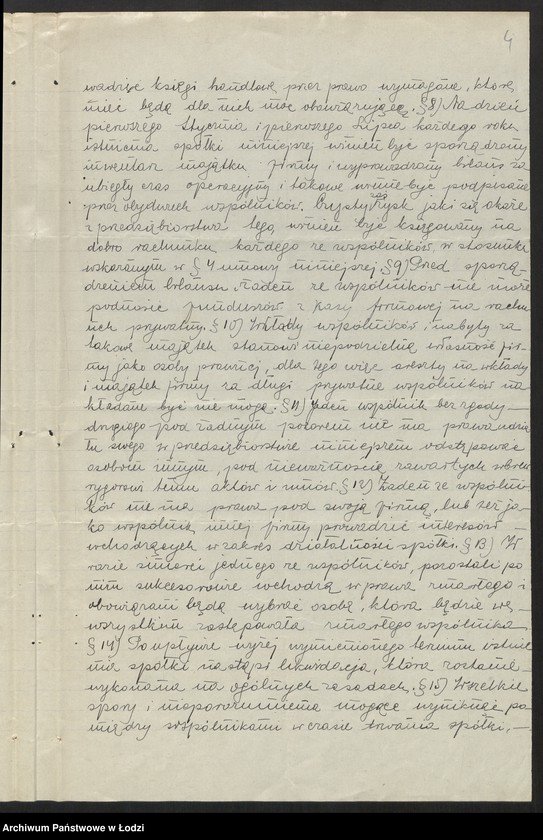 4
wadzić księgi handlowe przez prawo wymagane, które
mieć będą dla nich moc obowiązującą. § 8) Na dzień
pierwszego Stycznia i pierwszego Lipca każdego roku
istnienia spółki niniejszej winien być sporządzony
inwentarz majątku firmy i wyprowadzony bilans za
ubiegły czas operacyjny i takowe winne być podpisane
przez obydwuch wspólników. Czysty zaś zysk jaki się okaże
z przedsiębiorstwa tego, winien być księgowany na
dobro rachunku każdego ze wspólników, w stosunku
wskazanym w § 4 umowy niniejszej. § 9) Przed sporzą-
dzeniem bilansu żaden ze wspólników nie może
podnosić funduszów z kasy firmowej na rachu
nek prywatny. § 10) Wkłady wspólników i nabyty za
takowe majątek stanowi niepodzielną własność fir-
my jako osoby prawnej, dla tego więc areszty na wkłady
i majątek firmy za długi prywatne wspólników na
kładane być nie mogą. § 11) Żaden wspólnik bez zgody
drugiego pod żadnym pozorem nie ma prawa udzia
łu swego w przedsiębiorstwie niniejszem odstępować
osobom innym, pod nieważnością zawartych wbrew
rygorowi temu aktów i umów. § 12) Żaden ze wspólni-
ków nie ma prawa pod swoją firmą, lub też ja-
ko wspólnik innej firmy prowadzić interesów
wchodzących w zakres działalności spółki. § 13) W
razie śmierci jednego ze wspólników, pozostali po
nim sukcesorowie wchodzą w prawa zmarłego i
obowiązani będą wybrać osobę, która będzie we
wszystkiem zastępowała zmarłego wspólnika
§ 14) Po upływie wyżej wymienionego terminu istnie
nia spółki nastąpi likwidacja, która zostanie
wykonana na ogólnych zasadach. § 15) Wszelkie
spory i nieporozumienia mogące wyniknąć po
między wspólnikami w czasie trwania spółki, —
Archiwum Państwowe w Łodzi